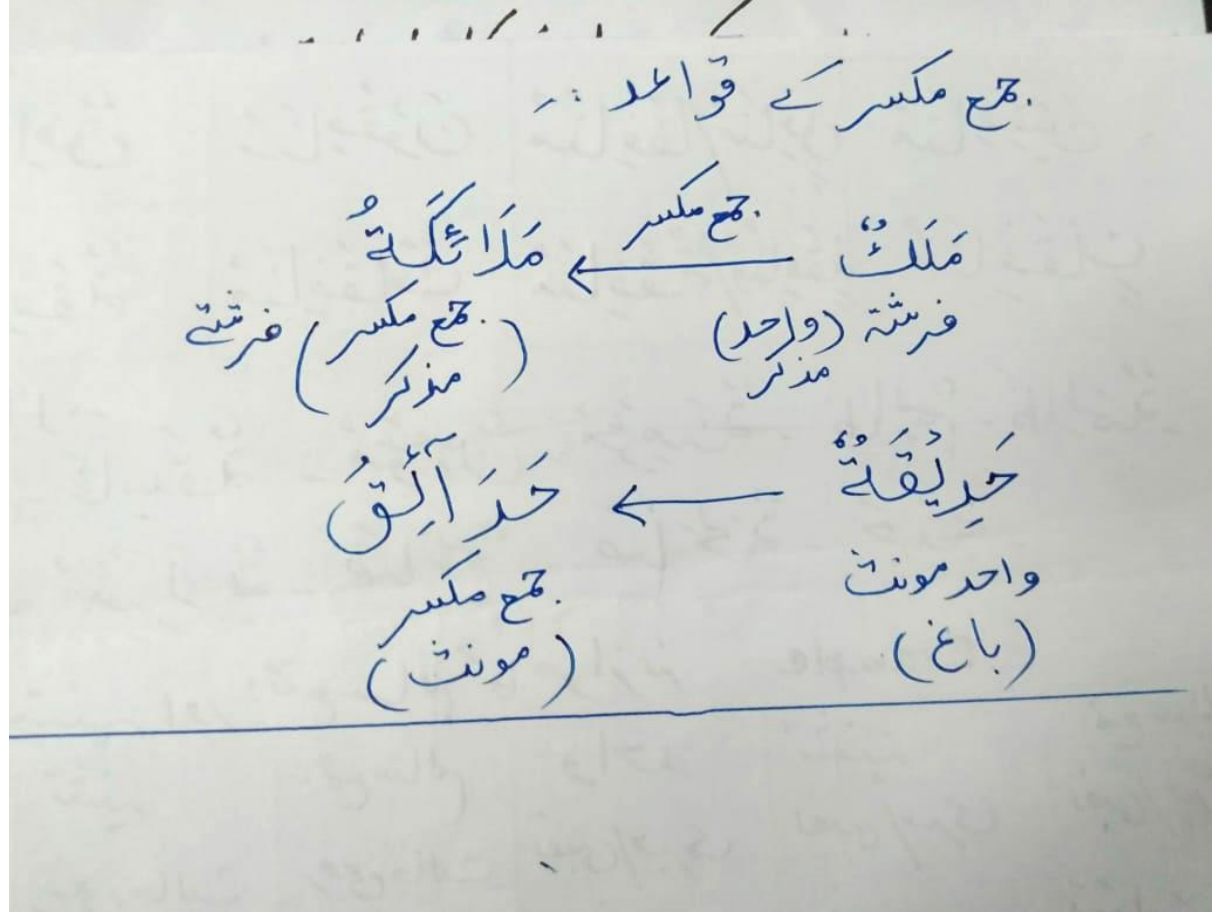 جمع مکسر کے قواعد :۔
مَلَكٌ ← جمع مکسر مَلَائَكَةُ
فرشتہ (واحد) مذکر (جمع مکسر مذکر) فرشتے
حَدِيْقَةٌ ← حَدَآئِقُ
واحد مونث جمع مکسر
(باغ) (مونث)